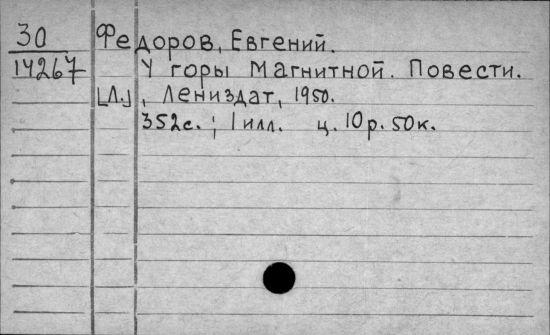 30 Федоров, Евгений.
14267 У горы Магнитной. Повести.
[Л.], Лениздат, 1950.
352с.; 1 илл. ц. 10р. 50к.